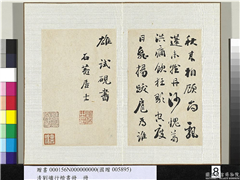 秋來相顧尚飄
蓬未就丹沙愧葛
洪痛飲狂歌空度
日飛揚跋扈為誰
雄 試硯書
石菴居士
贈書 000156N000000000(國贈 005895)
清劉墉行楷書冊 冊
8